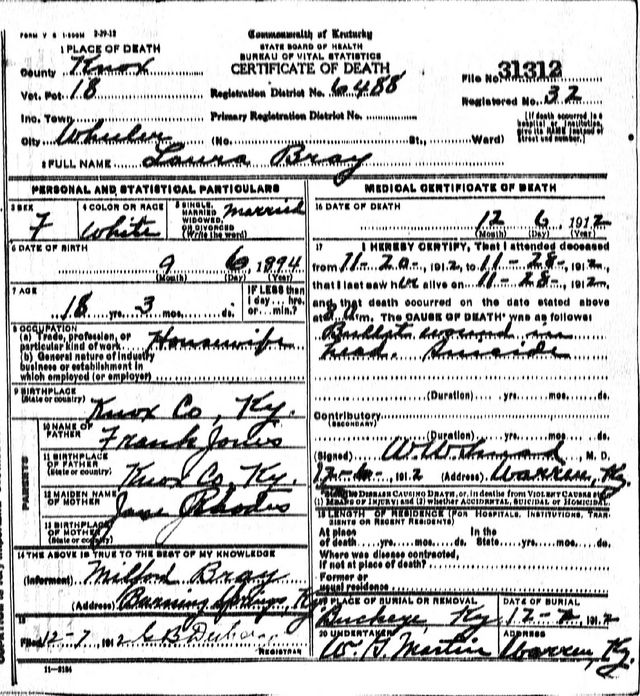 FORM V S 1-500M 2-29-12
Commonwealth of Kentucky
STATE BOARD OF HEALTH
BUREAU OF VITAL STATISTICS
CERTIFICATE OF DEATH
1 PLACE OF DEATH
County Knox
Vot. Pot 18
Registration District No. 6488
File No. 31312
Registered No. 32
Inc. Town
Primary Registration District No.
City Wheeler (No. St., Ward)
[If death occurred in a hospital or institution, give its NAME instead of street and number.]
2 FULL NAME Laura Bray
PERSONAL AND STATISTICAL PARTICULARS
3 SEX F
4 COLOR OR RACE White
5 SINGLE, MARRIED, WIDOWED, OR DIVORCED (Write the word) Married
6 DATE OF BIRTH
9 6 1894
(Month) (Day) (Year)
7 AGE
18 yrs. 3 mos. ds.
IF LESS than 1 day... hrs. or... min.?
8 OCCUPATION
(a) Trade, profession, or particular kind of work Housewife
(b) General nature of industry business or establishment in which employed (or employer)
9 BIRTHPLACE
(State or country) Knox Co, Ky.
PARENTS
10 NAME OF FATHER Frank Jones
11 BIRTHPLACE OF FATHER
(State or country) Knox Co. Ky.
12 MAIDEN NAME OF MOTHER Jane Rhodes
13 BIRTHPLACE OF MOTHER
(State or country)
14 THE ABOVE IS TRUE TO THE BEST OF MY KNOWLEDGE
(Informant) Milford Bray
(Address) Burning Springs, Ky
15
Filed 12-7 1912 G B
REGISTRAR
11-3184
MEDICAL CERTIFICATE OF DEATH
16 DATE OF DEATH
12 6 1912
(Month) (Day) (Year)
17 I HEREBY CERTIFY, That I attended deceased
from 11-20-, 1912, to 11-28-, 1912,
that I last saw her alive on 11-28-, 1912,
and that death occurred on the date stated above
at m. The CAUSE OF DEATH was as follows:
Bullet wound in
head. Suicide
(Duration) yrs. mos. ds.
Contributory
(SECONDARY)
(Duration) yrs. mos. ds.
(Signed) M. D.
12-6-, 1912 (Address) Warren, Ky.
State the DISEASE CAUSING DEATH, or, in deaths from VIOLENT CAUSES state (1) MEANS OF INJURY; and (2) whether ACCIDENTAL, SUICIDAL or HOMICIDAL.
18 LENGTH OF RESIDENCE (FOR HOSPITALS, INSTITUTIONS, TRANSIENTS OR RECENT RESIDENTS)
At place of death yrs. mos. ds. In the State yrs. mos. ds.
Where was disease contracted,
if not at place of death?
Former or
usual residence
19 PLACE OF BURIAL OR REMOVAL
Buckeye, Ky
DATE OF BURIAL
12-7 1912
20 UNDERTAKER
W. G. Martin
ADDRESS
Warren, Ky.